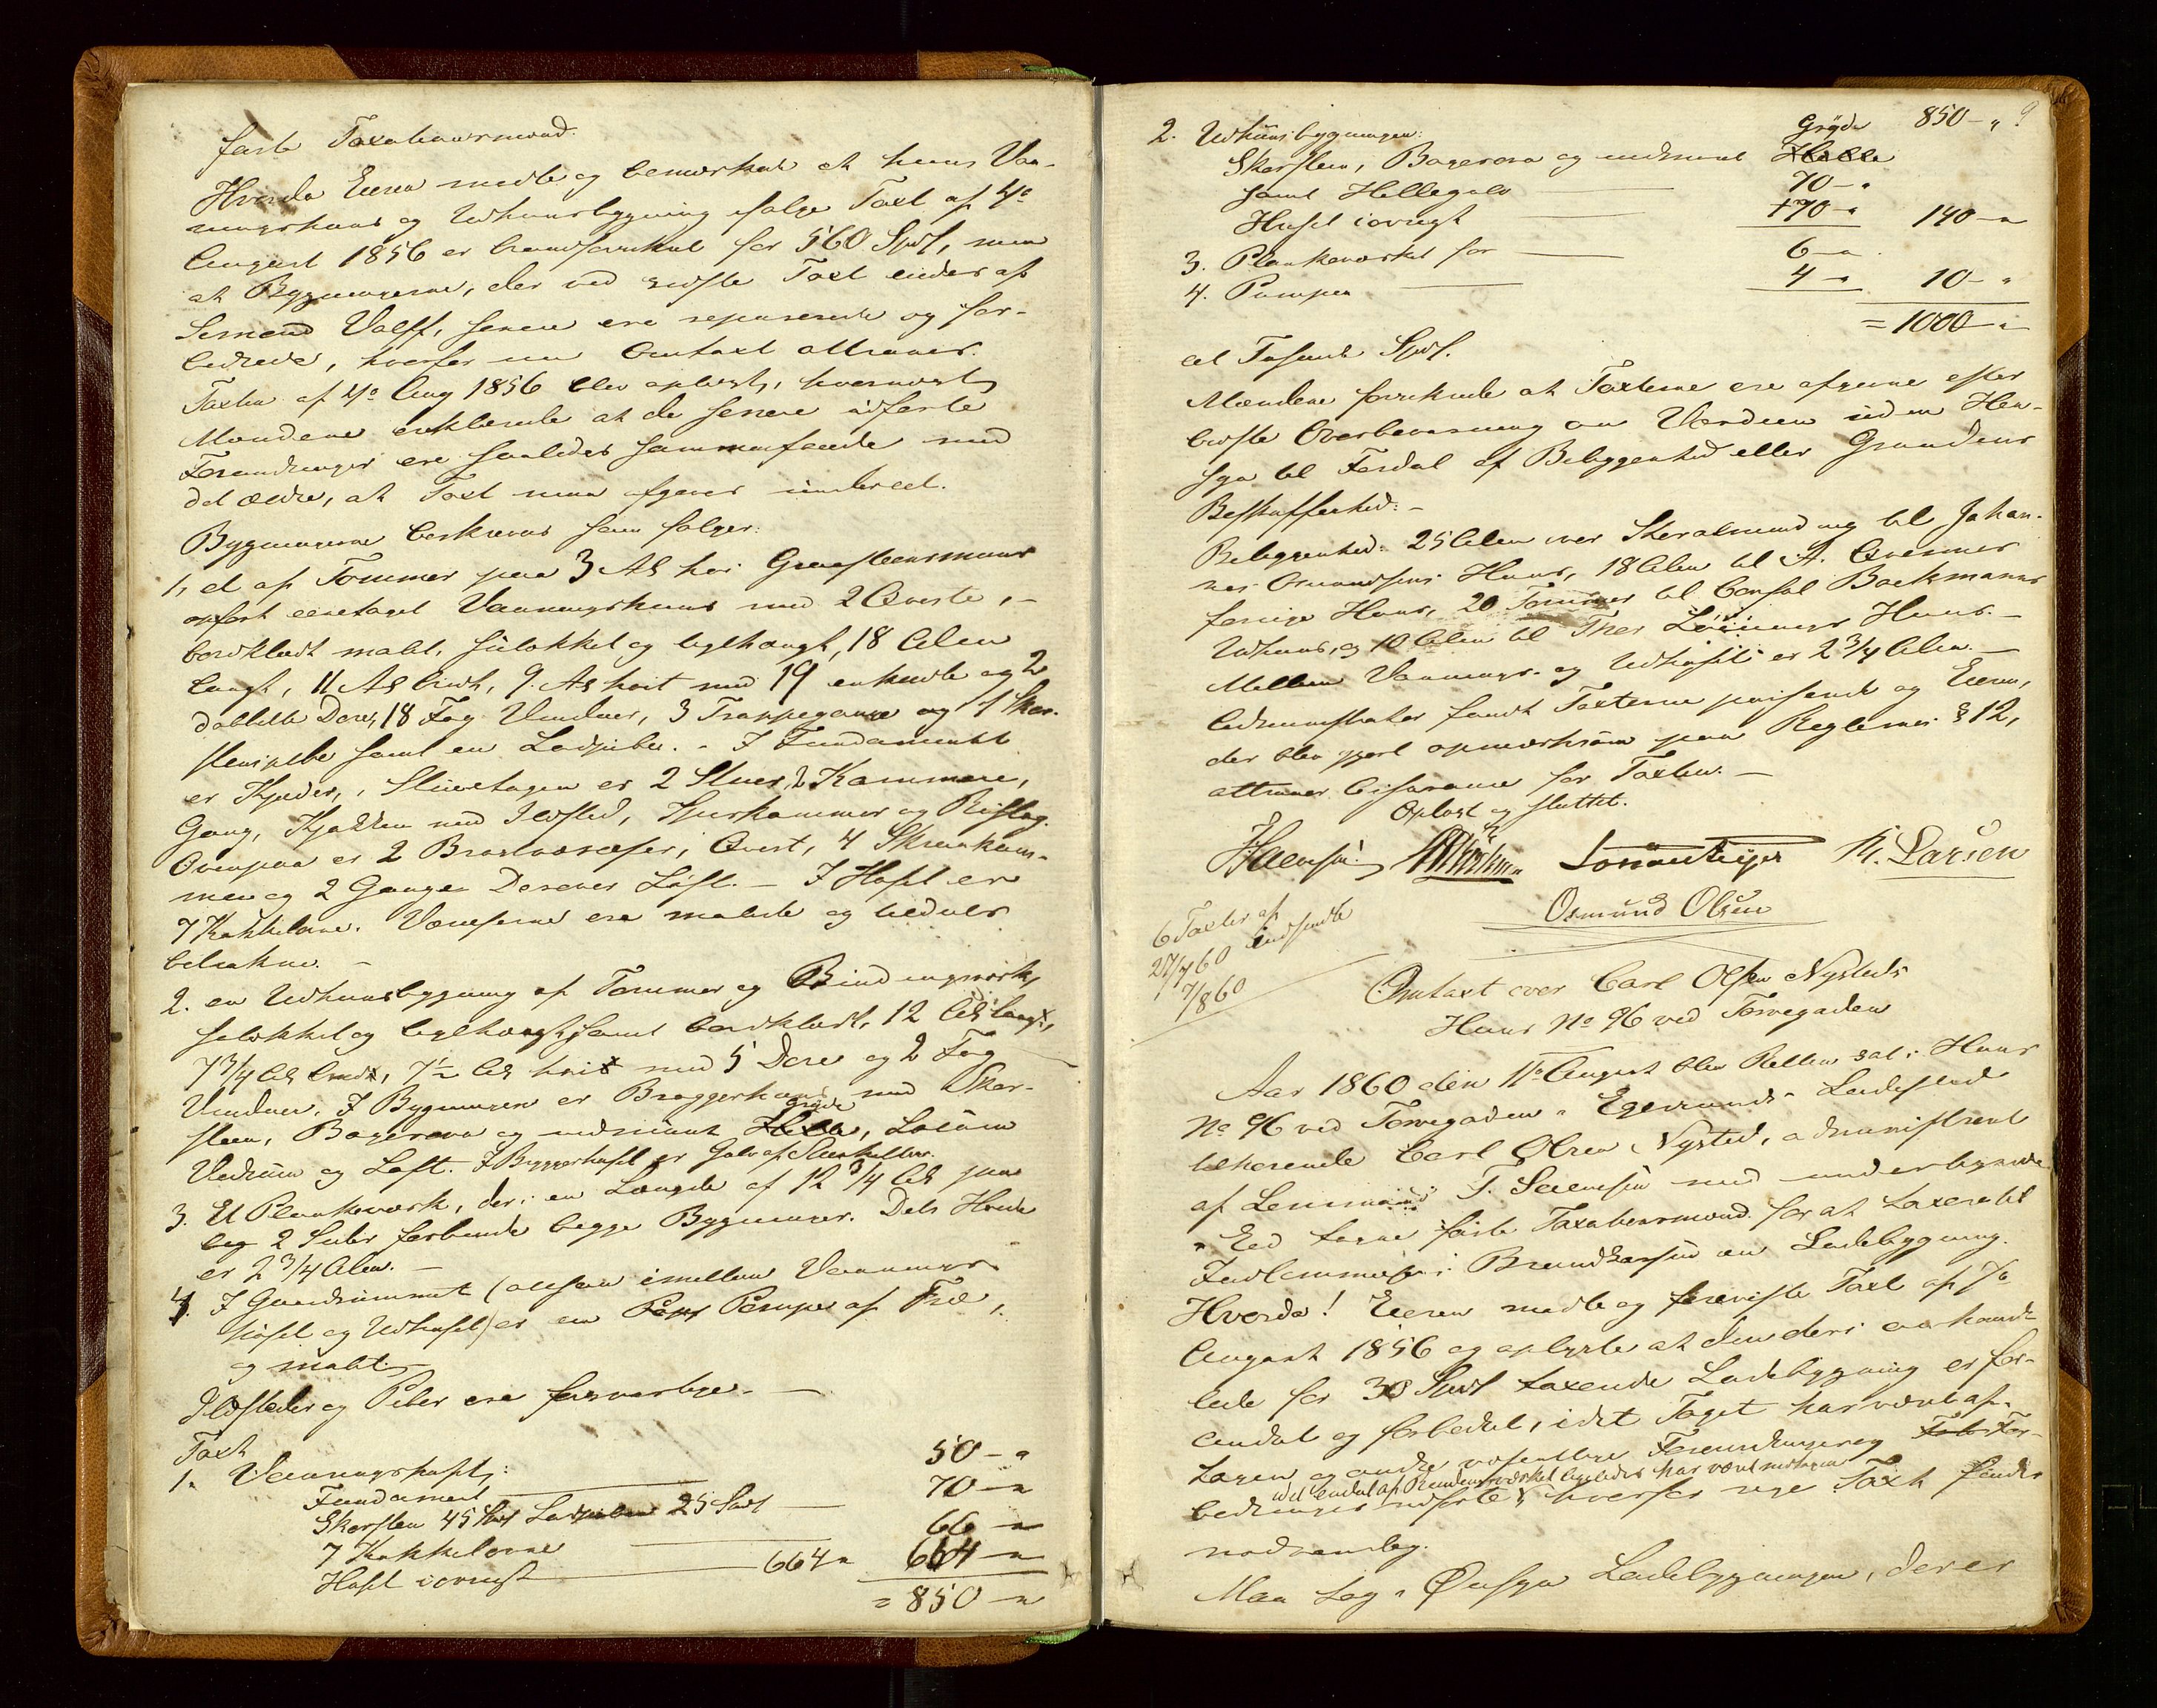 faste Taxationsmænd.
Hvorda Eieren mødte og bemærkede at hans Vaa-
ningshuus og Udhuusbygning ifølge Taxt af 4de
August 1856 er brandforsikret for 560 Spdl, men
at Bygningerne, der ved sidste Taxt eiedes af
Lensmand Wolff, senere ere reparerede og for-
bedrede, hvorfor ny Omtaxt attraaes.
Taxten af 4de Aug 1856 blev oplæst, hvornæst
Mændene erklærede at de senere udførte
Forandringer ere saaledes sammenføiede med
det ældre, at Taxt maa afgives under eet.
Bygningerne beskrives som følger:
1, et af Tømmer paa 3 Al høi Graasteensmuur
opført eenetages Vaaningshuus med 2 Qviste,
bordklædt malt, sulokket og teglhængt, 18 Alen
langt, 11 Al bredt, 9 Al høit med 19 enkelte og 2
dobbelte Døre, 18 Fag Vinduer, 3 Trappegange og 1 Skor-
steenspibe samt en Ladpibe. - I Fundamentet
er Kjelder, i Stuetagen er 2 Stuer, 2 Kammere,
Gang, Kjøkken med Ildsted, Spiskammer og Bislag.
Ovenpaa er 2 Brandværelser, Qvist, 4 Skraakam-
mer og 2 Gange. Derover Loft. - I Huset er
7 Kakkelovne. Værelserne ere malede og tildeels
betrukne. -
2. en Udhuusbygning af Tømmer og Bindingsværk,
sulokket og teglhængt, samt bordklædt, 12 Al langt,
7 3/4 Al bredt, 7 1/2 Al høit med 5 Døre og 2 Fag
Vinduer. I Bygningen er Bryggerhuus med Skor-
steen, Bagerovn og indmuret Gryde, Locum
Vedrum og Loft. I Bryggerhuset er Gulv af Steenheller.
3. Et Plankeværk, der i en Længde af 12 3/4 Al paa
2 Sider forbinde begge Bygninger. Dets Høide
er 2 3/4 Alen. -
4. I Gaardsrummet (altsaa imellem Vaanings-
huset og Udhuset) er en Pompe af Træ,
og malt.
Ildsteder og Piber ere forsvarlige. -
Taxt
1. Vaaningshuset:
Fundament 50 - "
Skorsten 45 Spdl Ladpiben 25 Spdl 70 - "
7 Kakkelovne 66 - "
Huset iøvrigt 664 " 664 - "
= 850 - "
9
850 - "
2. Udhuusbygningen:
Skorsteen, Bagerovn og indmuret Helle Gryde
samt Hellegulv 70 - "
Huset iøvrigt 70 - " 140 - "
3. Plankeværket for 6 - "
4. Pumpen 4 - " 10 - "
= 1000 - "
et Tusende Spdl.
Mændene forsikrede at Taxterne ere afgivne efter
bedste Overbeviisning om Værdien uden Hen-
syn til Fordeel af Beliggenhed eller Grundens
Beskaffenhed: -
Beliggenhed: 25 Alen over Skeralmending til Johan-
nes Osmundsens Huus, 18 Alen til A. Qvernes
forrige Huus, 20 Tommer til Consul Boekmanns
Udhuus, og 10 Alen til Ther Löinings Huus. -
Mellem Vaanings- og Udhuset er 2 3/4 Alen. -
Administrator fandt Taxterne passende og Eieren,
der blev gjort opmærksom paa Reglernes § 12,
attraaer Assurance for Taxten. -
Oplæst og sluttet.
K. Larsen
Osmund Olsen
6 Taxter af
27/7 60 indsendte
7/8 60
Omtaxt over Carl Olsen Nysteds
Huus No 96 ved Torvegaden
Aar 1860 den 11te August blev Retten sat i Huus
No 96 ved Torvegaden i Egersunds Ladested
tilhørende Carl Olsen Nysted, administreret
af Lensmand T. Seiersen med undertegnede
i Eed tagne faste Taxationsmænd for at taxere til
Indlemmelse i Brandkassen en Ladebygning.
Hvorda! Eieren mødte og foreviste Taxt af 7de
August 1856 og oplyste at den deri omhand-
lede for 30 Spdl taxerede Ladebygning er for-
andret og forbedret, idet Taget har været af-
tagen og andre væsentlige Forandringer og For-
idet endeel af Bindingsværket ligeledes har været nedtagen
bedringer udførte, hvorfor nye Taxt findes
nødvendig.
Man tog i Øiesyn Ladebygningen, der er